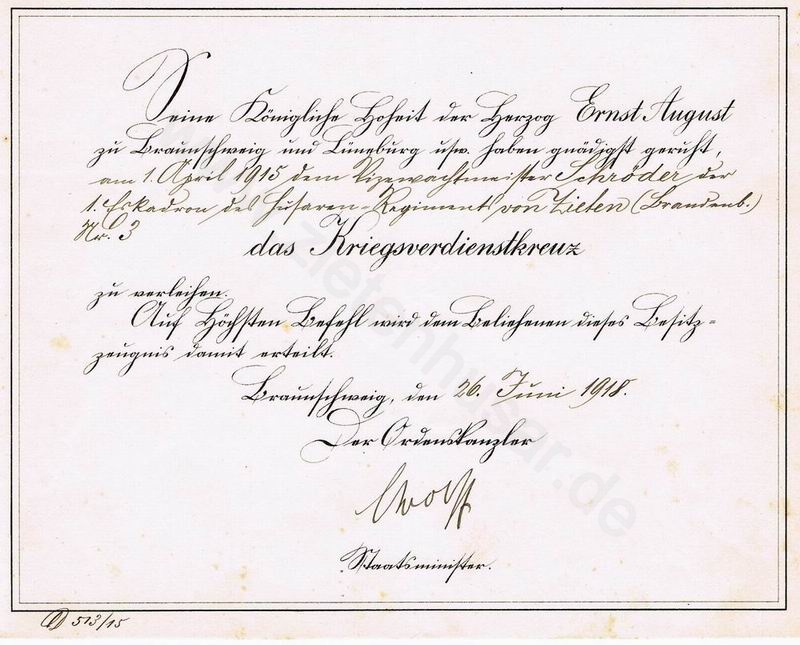 Seine Königliche Hoheit der Herzog Ernst August
zu Braunschweig und Lüneburg usw. haben gnädigst geruht,
am 1. April 1915 dem Vizewachtmeister Schröder der
1. Eskadron des Husaren-Regiments von Zieten (Brandenb.)
Nr. 3
das Kriegsverdienstkreuz
zu verleihen.
Auf Höchsten Befehl wird dem Beliehenen dieses Besitz=
zeugnis damit erteilt.
Braunschweig, den 26. Juni 1918.
Der Ordenskanzler
Wolff
Staatsminister.
513/15